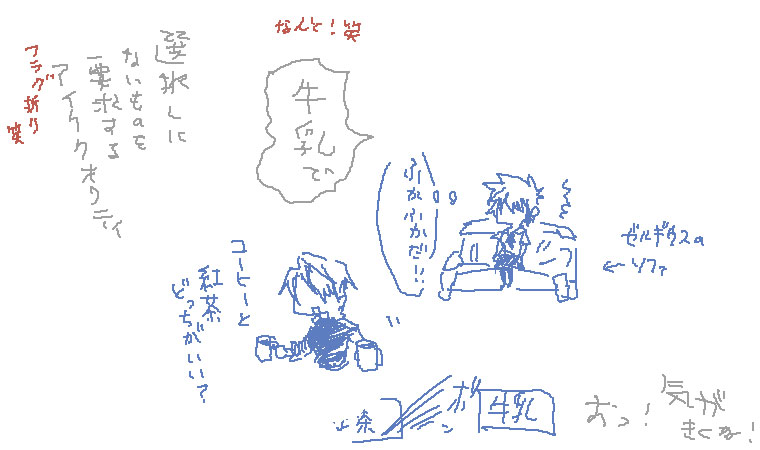 なんと!笑
選択しに
ないものを
要求する
アイククオリティ
フラグ折り
笑
牛
乳
で
ふかふかだ…
ゼルギウスの
ソファ
←
コーヒーと
紅茶
どっちがいい?
茶
ガ
ーン
牛乳
おっ!
気が
きくな!